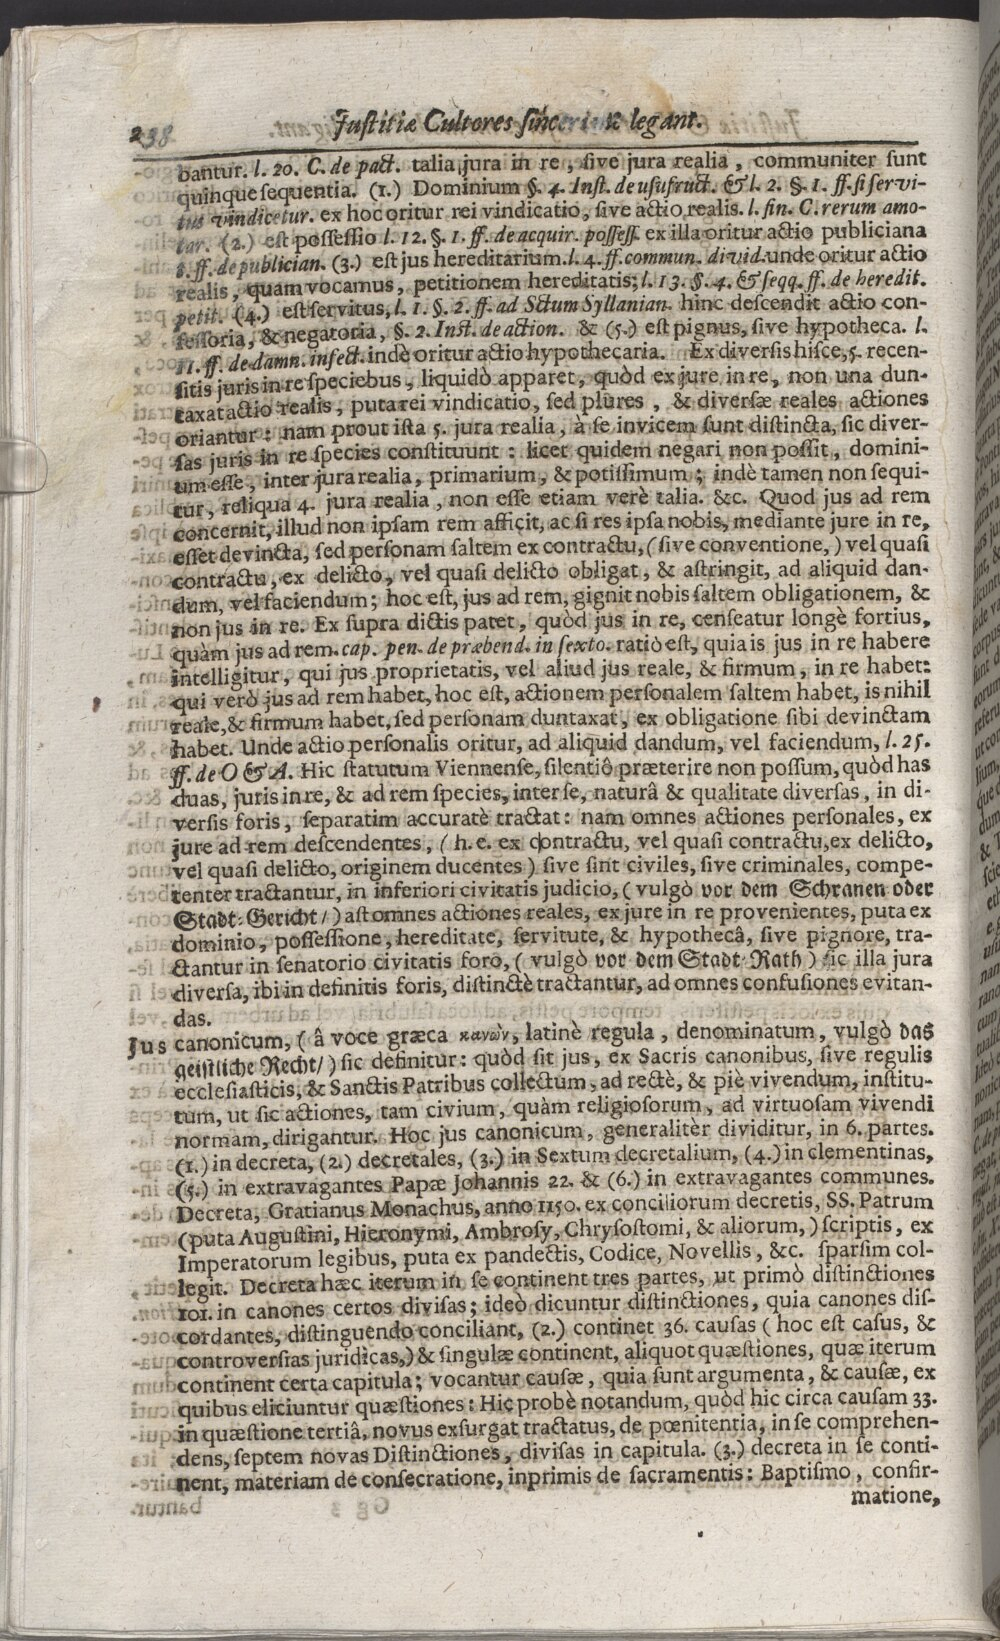 238 Juſtitiæ Cultores ſinceri hæc legant.
bantur. l. 20. C. de pact. talia jura in re, ſive jura realia, communiter ſunt
quinque ſequentia. (1.) Dominium §. 4. Inſt. de uſufruct. & l. 2. §. 1. ff. ſi ſervi-
tus vindicetur. ex hoc oritur rei vindicatio, ſive actio realis. l. fin. C. rerum amo-
tar. (2.) eſt poſſeſſio l. 12. §. 1. ff. de acquir. poſſeſſ. ex illa oritur actio publiciana
ff. de publician. (3.) eſt jus hereditarium. l. 4. ff. commun. divid. unde oritur actio
realis, quam vocamus, petitionem hereditatis; l. 13. §. 4. & ſeqq. ff. de heredit.
petit. (4.) eſt ſervitus, l. 1. §. 2. ff. ad Sctum Syllanian. hinc deſcendit actio con-
feſſoria, & negatoria, §. 2. Inſt. de action. & (5.) eſt pignus, ſive hypotheca. l.
11. ff. de damn. infect. indè oritur actio hypothecaria. Ex diverſis hiſce, 5. recen-
ſitis juris in re ſpeciebus, liquidò apparet, quòd ex jure in re, non una dun-
taxat actio realis, puta rei vindicatio, ſed plures, & diverſæ reales actiones
oriantur: nam prout iſta 5. jura realia, à ſe invicem ſunt diſtincta, ſic diver-
ſas juris in re ſpecies conſtituunt: licet quidem negari non poſſit, domini-
um eſſe, inter jura realia, primarium, & potiſſimum; indè tamen non ſequi-
tur, reliqua 4. jura realia, non eſſe etiam verè talia. &c. Quod jus ad rem
concernit, illud non ipſam rem afficit, ac ſi res ipſa nobis, mediante jure in re,
eſſet devincta, ſed perſonam ſaltem ex contractu, (ſive conventione,) vel quaſi
contractu, ex delicto, vel quaſi delicto obligat, & aſtringit, ad aliquid dan-
dum, vel faciendum; hoc eſt, jus ad rem, gignit nobis ſaltem obligationem, &
non jus in re. Ex ſupra dictis patet, quòd jus in re, cenſeatur longè fortius,
quàm jus ad rem. cap. pen. de præbend. in ſexto. ratio eſt, quia is jus in re habere
intelligitur, qui jus proprietatis, vel aliud jus reale, & firmum, in re habet:
qui verò jus ad rem habet, hoc eſt, actionem perſonalem ſaltem habet, is nihil
reale, & firmum habet, ſed perſonam duntaxat, ex obligatione ſibi devinctam
habet. Unde actio perſonalis oritur, ad aliquid dandum, vel faciendum, l. 25.
ff. de O & A. Hic ſtatutum Viennenſe, ſilentiô præterire non poſſum, quòd has
duas, juris in re, & ad rem ſpecies, inter ſe, naturâ & qualitate diverſas, in di-
verſis foris, ſeparatim accuratè tractat: nam omnes actiones perſonales, ex
jure ad rem deſcendentes, (h. e. ex contractu, vel quaſi contractu, ex delicto,
vel quaſi delicto, originem ducentes) ſive ſint civiles, ſive criminales, compe-
tenter tractantur, in inferiori civitatis judicio, (vulgò vor dem Schranen oder
Stadt-Gericht/) aſt omnes actiones reales, ex jure in re provenientes, puta ex
dominio, poſſeſſione, hereditate, ſervitute, & hypothecâ, ſive pignore, tra-
ctantur in ſenatorio civitatis foro, (vulgò vor dem Stadt-Rath) ſic illa jura
diverſa, ibi in definitis foris, diſtinctè tractantur, ad omnes confuſiones evitan-
das.
Jus canonicum, (â voce græca κανὼν, latinè regula, denominatum, vulgò das
geiſtliche Recht/) ſic definitur: quòd ſit jus, ex Sacris canonibus, ſive regulis
eccleſiaſticis, & Sanctis Patribus collectum, ad rectè, & piè vivendum, inſtitu-
tum, ut ſic actiones, tam civium, quàm religioſorum, ad virtuoſam vivendi
normam, dirigantur. Hoc jus canonicum, generalitèr dividitur, in 6. partes.
(1.) in decreta, (2.) decretales, (3.) in Sextum decretalium, (4.) in clementinas,
(5.) in extravagantes Papæ Johannis 22. & (6.) in extravagantes communes.
Decreta, Gratianus Monachus, anno 1150. ex conciliorum decretis, SS. Patrum
(puta Auguſtini, Hieronymi, Ambroſy, Chryſoſtomi, & aliorum,) ſcriptis, ex
Imperatorum legibus, puta ex pandectis, Codice, Novellis, &c. ſparſim col-
legit. Decreta hæc iterum in ſe continent tres partes, ut primò diſtinctiones
101. in canones certos diviſas; ideò dicuntur diſtinctiones, quia canones diſ-
cordantes, diſtinguendo conciliant, (2.) continet 36. cauſas (hoc eſt caſus, &
controverſias juridicas,) & ſingulæ continent, aliquot quæſtiones, quæ iterum
continent certa capitula; vocantur cauſæ, quia ſunt argumenta, & cauſæ, ex
quibus eliciuntur quæſtiones: Hic probè notandum, quòd hic circa cauſam 33.
in quæſtione tertiâ, novus exſurgat tractatus, de pœnitentia, in ſe comprehen-
dens, ſeptem novas Diſtinctiones, diviſas in capitula. (3.) decreta in ſe conti-
nent, materiam de conſecratione, inprimis de ſacramentis: Baptiſmo, confir-
matione,